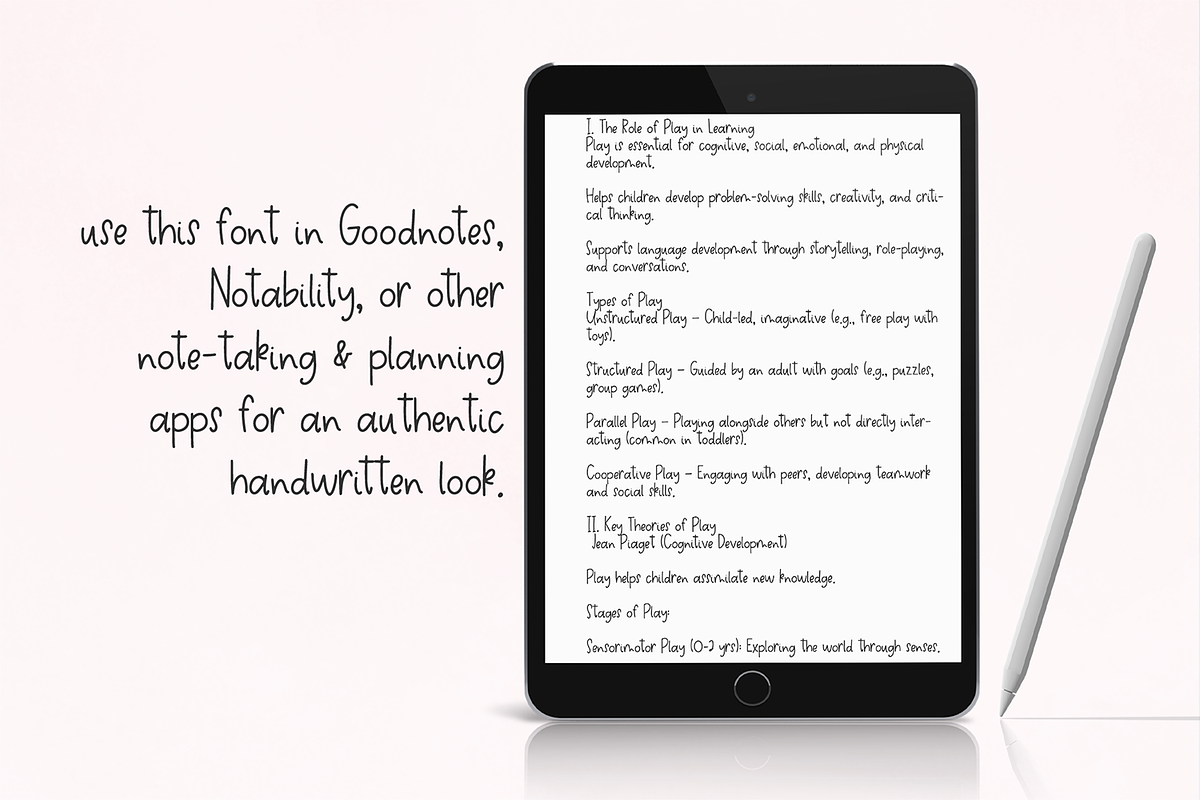 use this font in Goodnotes,
Notability, or other
note-taking & planning
apps for an authentic
handwritten look.
I. The Role of Play in Learning
Play is essential for cognitive, social, emotional, and physical
development.
Helps children develop problem-solving skills, creativity, and criti-
cal thinking.
Supports language development through storytelling, role-playing,
and conversations.
Types of Play
Unstructured Play – Child-led, imaginative (e.g., free play with
toys).
Structured Play – Guided by an adult with goals (e.g., puzzles,
group games).
Parallel Play – Playing alongside others but not directly inter-
acting (common in toddlers).
Cooperative Play – Engaging with peers, developing teamwork
and social skills.
II. Key Theories of Play
Jean Piaget (Cognitive Development)
Play helps children assimilate new knowledge.
Stages of Play:
Sensorimotor Play (0-2 yrs): Exploring the world through senses.